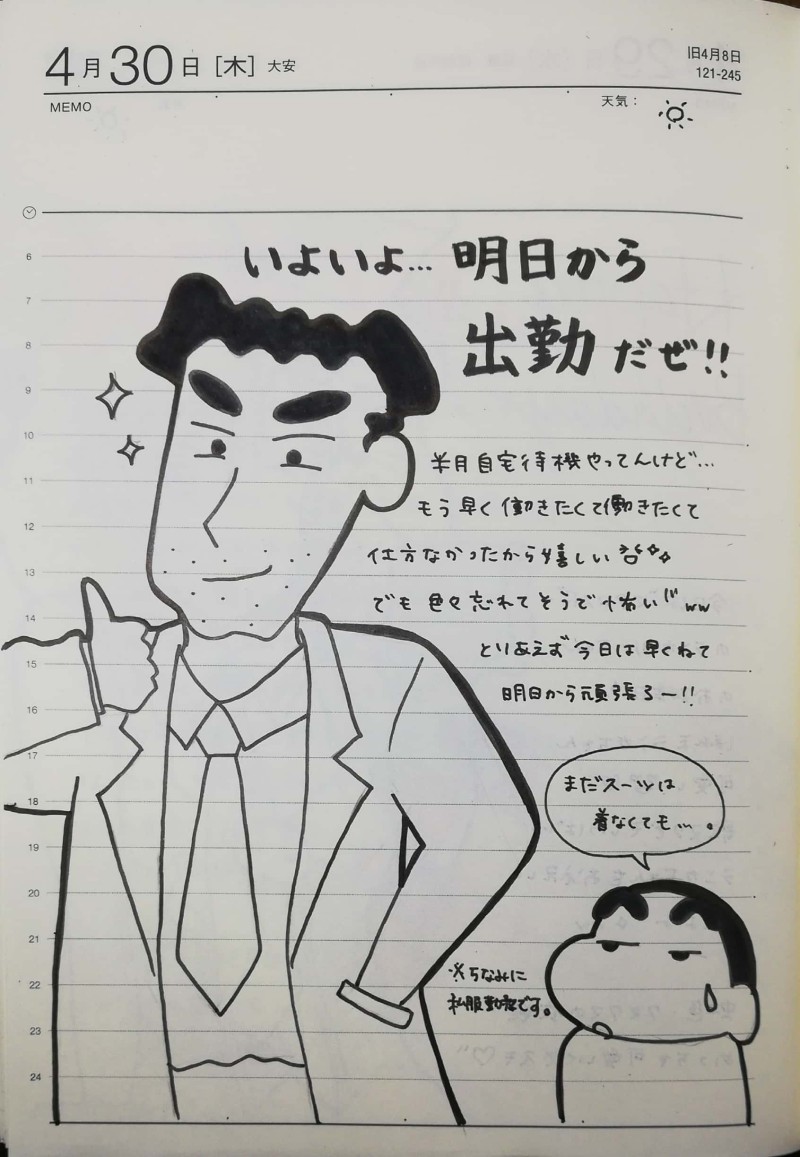 4月30日［木］大安
旧4月8日
121-245
MEMO
天気：
いよいよ… 明日から
出勤だぜ!!
半月自宅待機やってんけど…
もう早く働きたくて働きたくて
仕方なかったから嬉しい
でも色々忘れてそうで怖いww
とりあえず今日は早くねて
明日から頑張ろー!!
まだスーツは
着なくても…。
※ちなみに
私服勤務です。
6
7
8
9
10
11
12
13
14
15
16
17
18
19
20
21
22
23
24